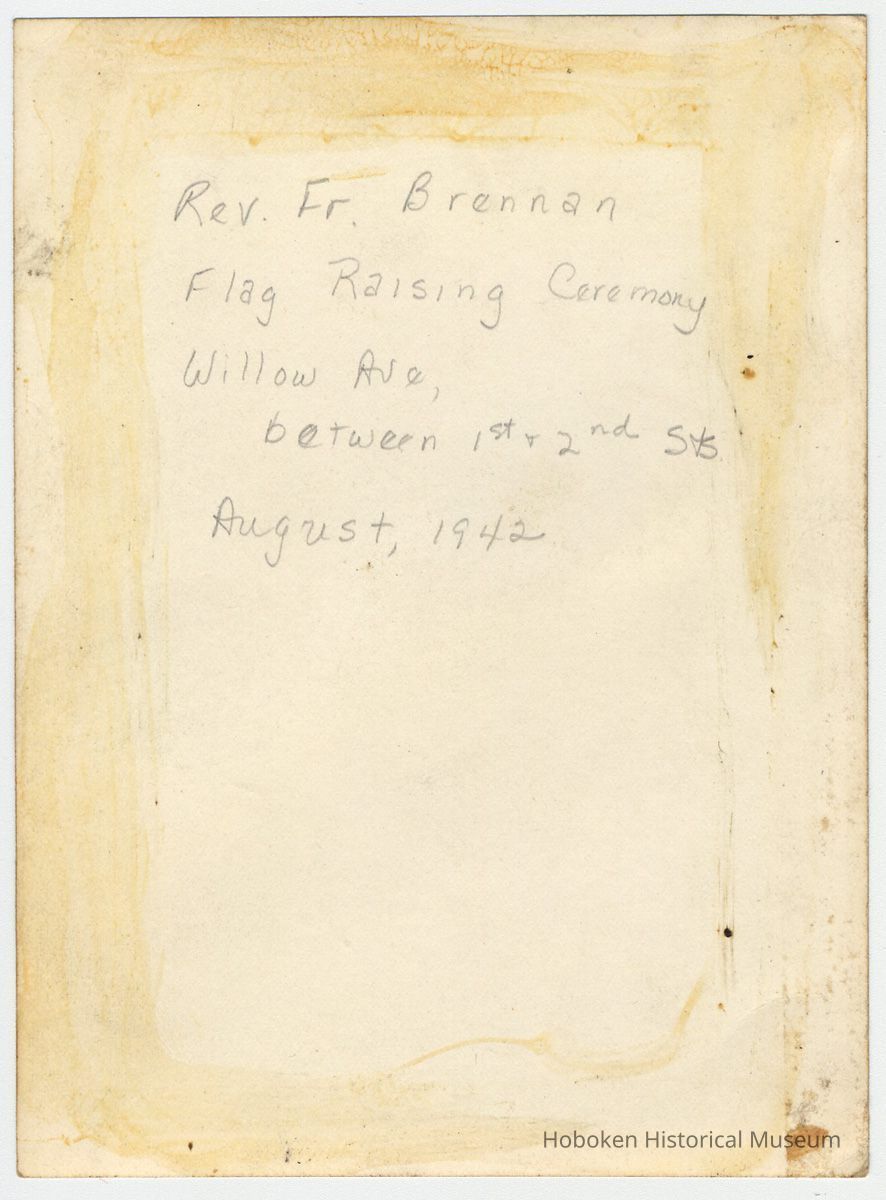 Rev. Fr. Brennan
Flag Raising Ceremony
Willow Ave,
between 1st & 2nd Sts.
August, 1942
Hoboken Historical Museum